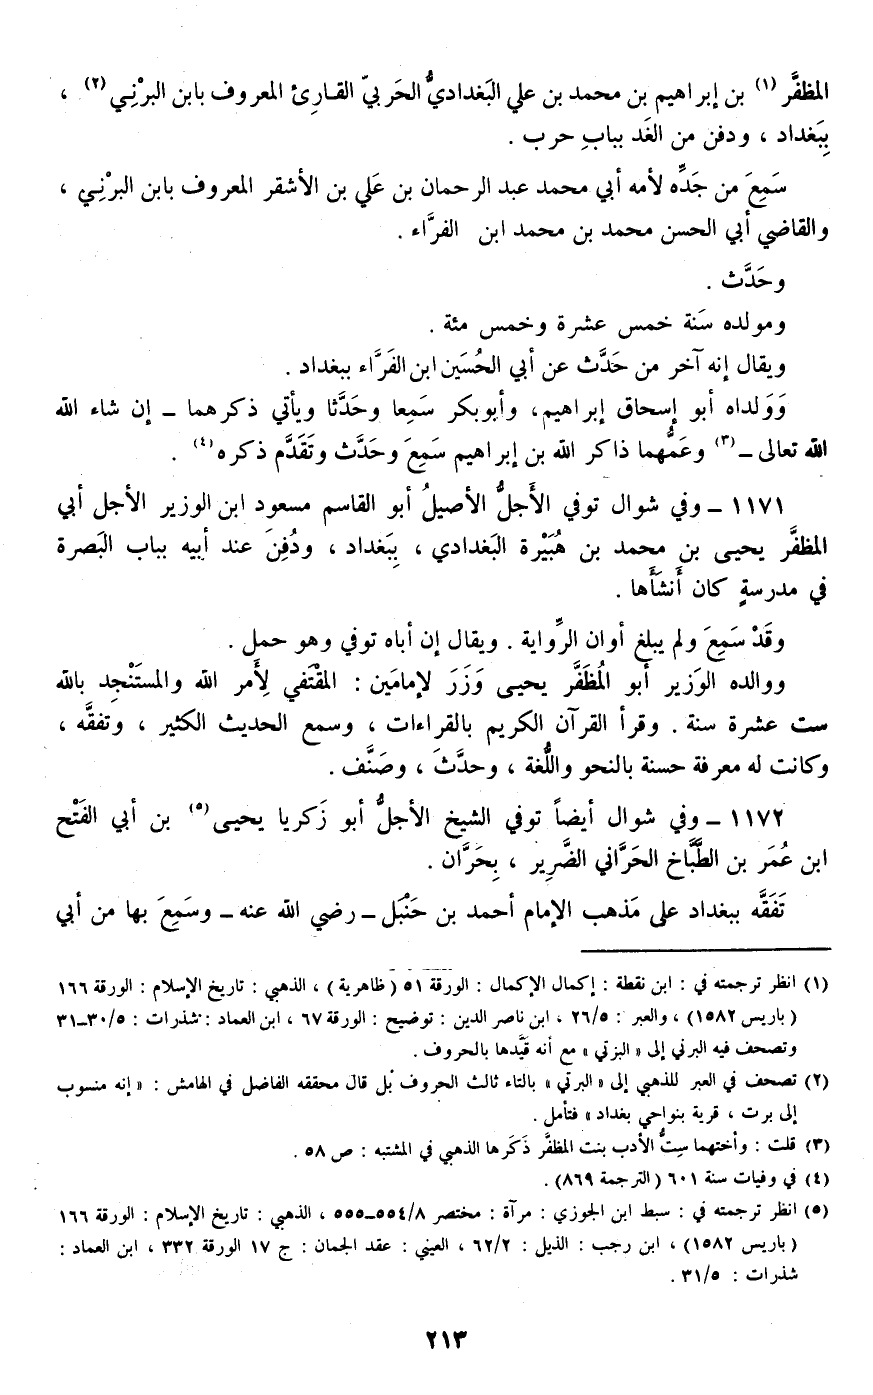 المظفَّر (١) بن إبراهيم بن محمد بن علي البَغداديُّ الحَربيّ القـارِئ المعروف بابن البرْنِـي (٢) ،
بِبَغداد ، ودفن من الغَد ببابِ حرب .
سَمِعَ من جَدِّه لأمه أبي محمد عبد الرحمان بن عَلي بن الأشقر المعروف بابن البرْنِـي ،
والقاضي أبي الحسن محمد بن محمد ابن الفرَّاء .
وحَدَّث .
ومولده سَنة خمس عشرة وخمس مئة .
ويقال إنه آخر من حَدَّث عن أبي الحُسَين ابن الفَرَّاء ببغداد .
وَوَلداه أبو إسحاق إبراهيم، وأبوبكر سَمِعا وحَدَّثا ويأتي ذكرهما ـ إن شاء الله
الله تعالى ـ (٣) وعَمُّهما ذاكر الله بن إبراهيم سَمِعَ وحَدَّث وتَقَدَّم ذكره (٤) .
١١٧١ ـ وفي شوال توفي الأَجلُّ الأصيلُ أبو القاسم مسعود ابن الوزير الأجل أبي
المظفَّر يحيـى بن محمد بن هُبَيْرة البَغدادي ، بِبَغداد ، ودُفِنَ عند أبيه بباب البَصرة
في مدرسةٍ كان أَنشَأَها .
وقَدْ سَمِعَ ولم يبلغ أوان الرِّواية . ويقال إن أباه توفي وهو حمل .
ووالده الوَزير أبو المُظَفَّر يحيـى وَزَرَ لإمامَين : المقْتَفي لِأَمر الله والمستَنْجِد بالله
ست عشرة سنة . وقرأ القرآن الكريم بالقراءات ، وسمع الحديث الكثير ، وتفقَّه ،
وكانت له معرفة حسنة بالنحو واللُّغة ، وحدَّثَ ، وصَنَّف .
١١٧٢ ـ وفي شوال أيضاً توفي الشيخ الأجلُّ أبو زَكريا يحيـى (٥) بن أبي الفَتْح
ابن عُمَر بن الطَّبَّاخ الحَرَّاني الضَّرِير ، بِحَرَّان .
تَفَقَّه ببغداد على مَذهب الإمام أحمد بن حَنْبَل ـ رضي الله عنه ـ وسَمِعَ بها من أبي
(١) انظر ترجمته في : ابن نقطة : إكمال الإكمال : الورقة ٥١ ( ظاهرية ) ، الذهبي : تاريخ الإسلام : الورقة ١٦٦
( باريس ١٥٨٢ ) ، والعبر : ٢٦/٥ ، ابن ناصر الدين : توضيح : الورقة ٦٧ ، ابن العماد : شذرات : ٣٠/٥ـ٣١
وتصحف فيه البرني إلى « البزتي » مع أنه قَيَّدها بالحروف .
(٢) تصحف في العبر للذهبي إلى « البرتي » بالتاء ثالث الحروف بل قال محققه الفاضل في الهامش : « إنه منسوب
إلى برت ، قرية بنواحي بغداد » فتأمل .
(٣) قلت : وأختهما سِتُّ الأدب بنت المظفَّر ذَكَرها الذهبي في المشتبه : ص ٥٨ .
(٤) في وفيات سنة ٦٠١ (الترجمة ٨٦٩) .
(٥) انظر ترجمته في : سبط ابن الجوزي : مرآة : مختصر ٥٥٤/٨ـ٥٥٥ ، الذهبي : تاريخ الإسلام : الورقة ١٦٦
( باريس ١٥٨٢ ) ، ابن رجب : الذيل : ٦٢/٢ ، العيني : عقد الجمان : ج ١٧ الورقة ٣٣٢ ، ابن العماد :
شذرات : ٣١/٥ .
٢١٣